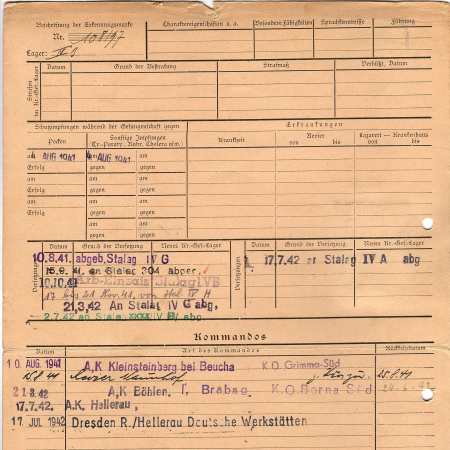 Beschriftung der Erkennungsmarke
Nr. 10897
Lager:
Charaktereigenschaften u. a.
Besondere Fähigkeiten
Sprachkenntnisse
Führung
Strafen im Kr.-Gef.-Lager
Datum
Grund der Bestrafung
Strafmaß
Verbüßt, Datum
Schutzimpfungen während der Gefangenschaft gegen
Erkrankungen
Pocken
Sonstige Impfungen (Ty.-Paraty., Ruhr, Cholera usw.)
Krankheit
Revier
von bis
Lazarett — Krankenhaus
von bis
4 AUG 1941
am AUG 1941 am
Erfolg gegen gegen
am am am
Erfolg gegen gegen
am am am
Erfolg gegen gegen
am am am
Erfolg gegen gegen
Versetzungen
Datum Grund der Versetzung Neues Kr.-Gef.-Lager
10.8.41. abgeb. Stalag IV G
15.9.41 an Stalag 304 abger.
10.10.41 Arb-Einsatz Stalag IV B
17 bis 21 Nov. 41. von
21.3.42 An Stalag IV G abg,
2.7.42 an Stalag XXXX IV H/ abg
Versetzungen
Datum Grund der Versetzung Neues Kr.-Gef.-Lager
17.7.42 an Stalag IV A abg
Kommandos
Datum Art des Kommandos Rückkehrdatum
10 AUG. 1941 A,K Kleinsteinberg bei Beucha K.O. Grimma-Süd
25.8.41 25.8.41
21.3.42 A,K Böhlen, T. Brabag, K.O. Borna Süd
17.7.42. A.K. Hellerau,
17 JUL 1942 Dresden R./Hellerau Deutsche Werkstätten